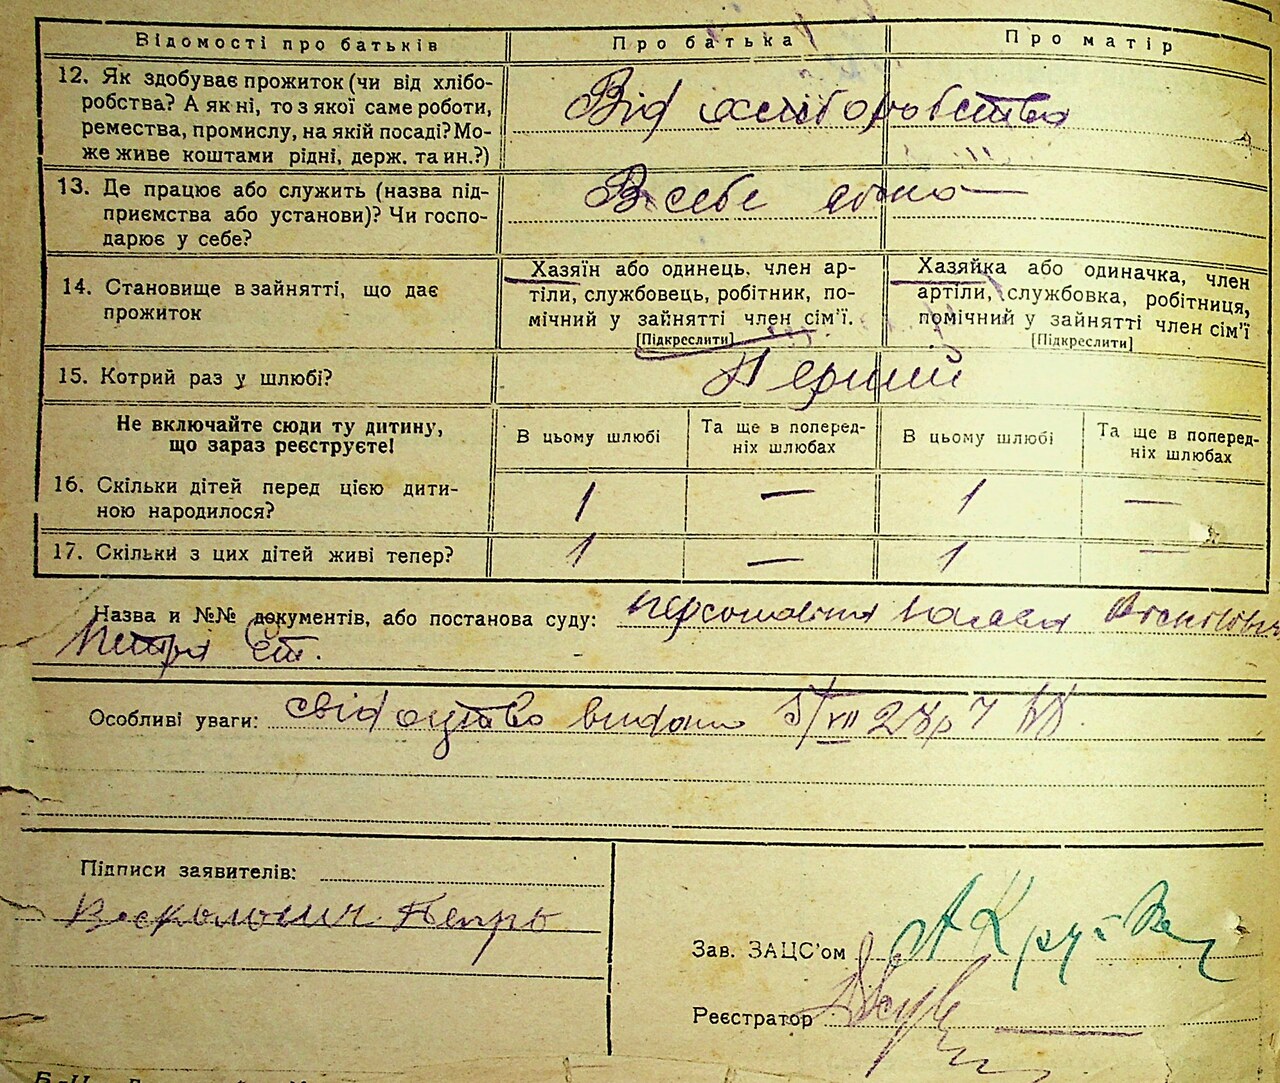 Відомості про батьків
Про батька
Про матір
12. Як здобуває прожиток (чи від хлібо-
робства? А як ні, то з якої саме роботи,
ремества, промислу, на якій посаді? Мо-
же живе коштами рідні, держ. та ин.?)
Від хліборобства
13. Де працює або служить (назва під-
приємства або установи)? Чи госпо-
дарює у себе?
В себе
14. Становище в зайнятті, що дає
прожиток
Хазяїн або одинець, член ар-
тіли, службовець, робітник, по-
мічний у зайнятті член сім'ї.
[Підкреслити]
Хазяйка або одиначка, член
артіли, службовка, робітниця,
помічний у зайнятті член сім'ї
[Підкреслити]
15. Котрий раз у шлюбі?
Перший
Не включайте сюди ту дитину,
що зараз реєструєте!
В цьому шлюбі
Та ще в поперед-
ніх шлюбах
В цьому шлюбі
Та ще в поперед-
ніх шлюбах
16. Скільки дітей перед цією дити-
ною народилося?
1 — 1 —
17. Скільки з цих дітей живі тепер?
1 — 1 —
Назва и №№ документів, або постанова суду:
Петра
Особливі уваги: свідоцтво видано 5/VII 27р
Підписи заявителів:
Петро
Зав. ЗАЦС'ом
Реєстратор